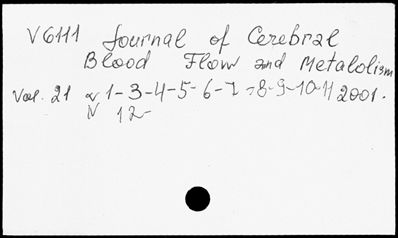 V6111 Journal of Cerebral
Blood Flow and Metalolism
Vol. 21 N 1-3-4-5-6-7-8-9-10-11 2001.
12-